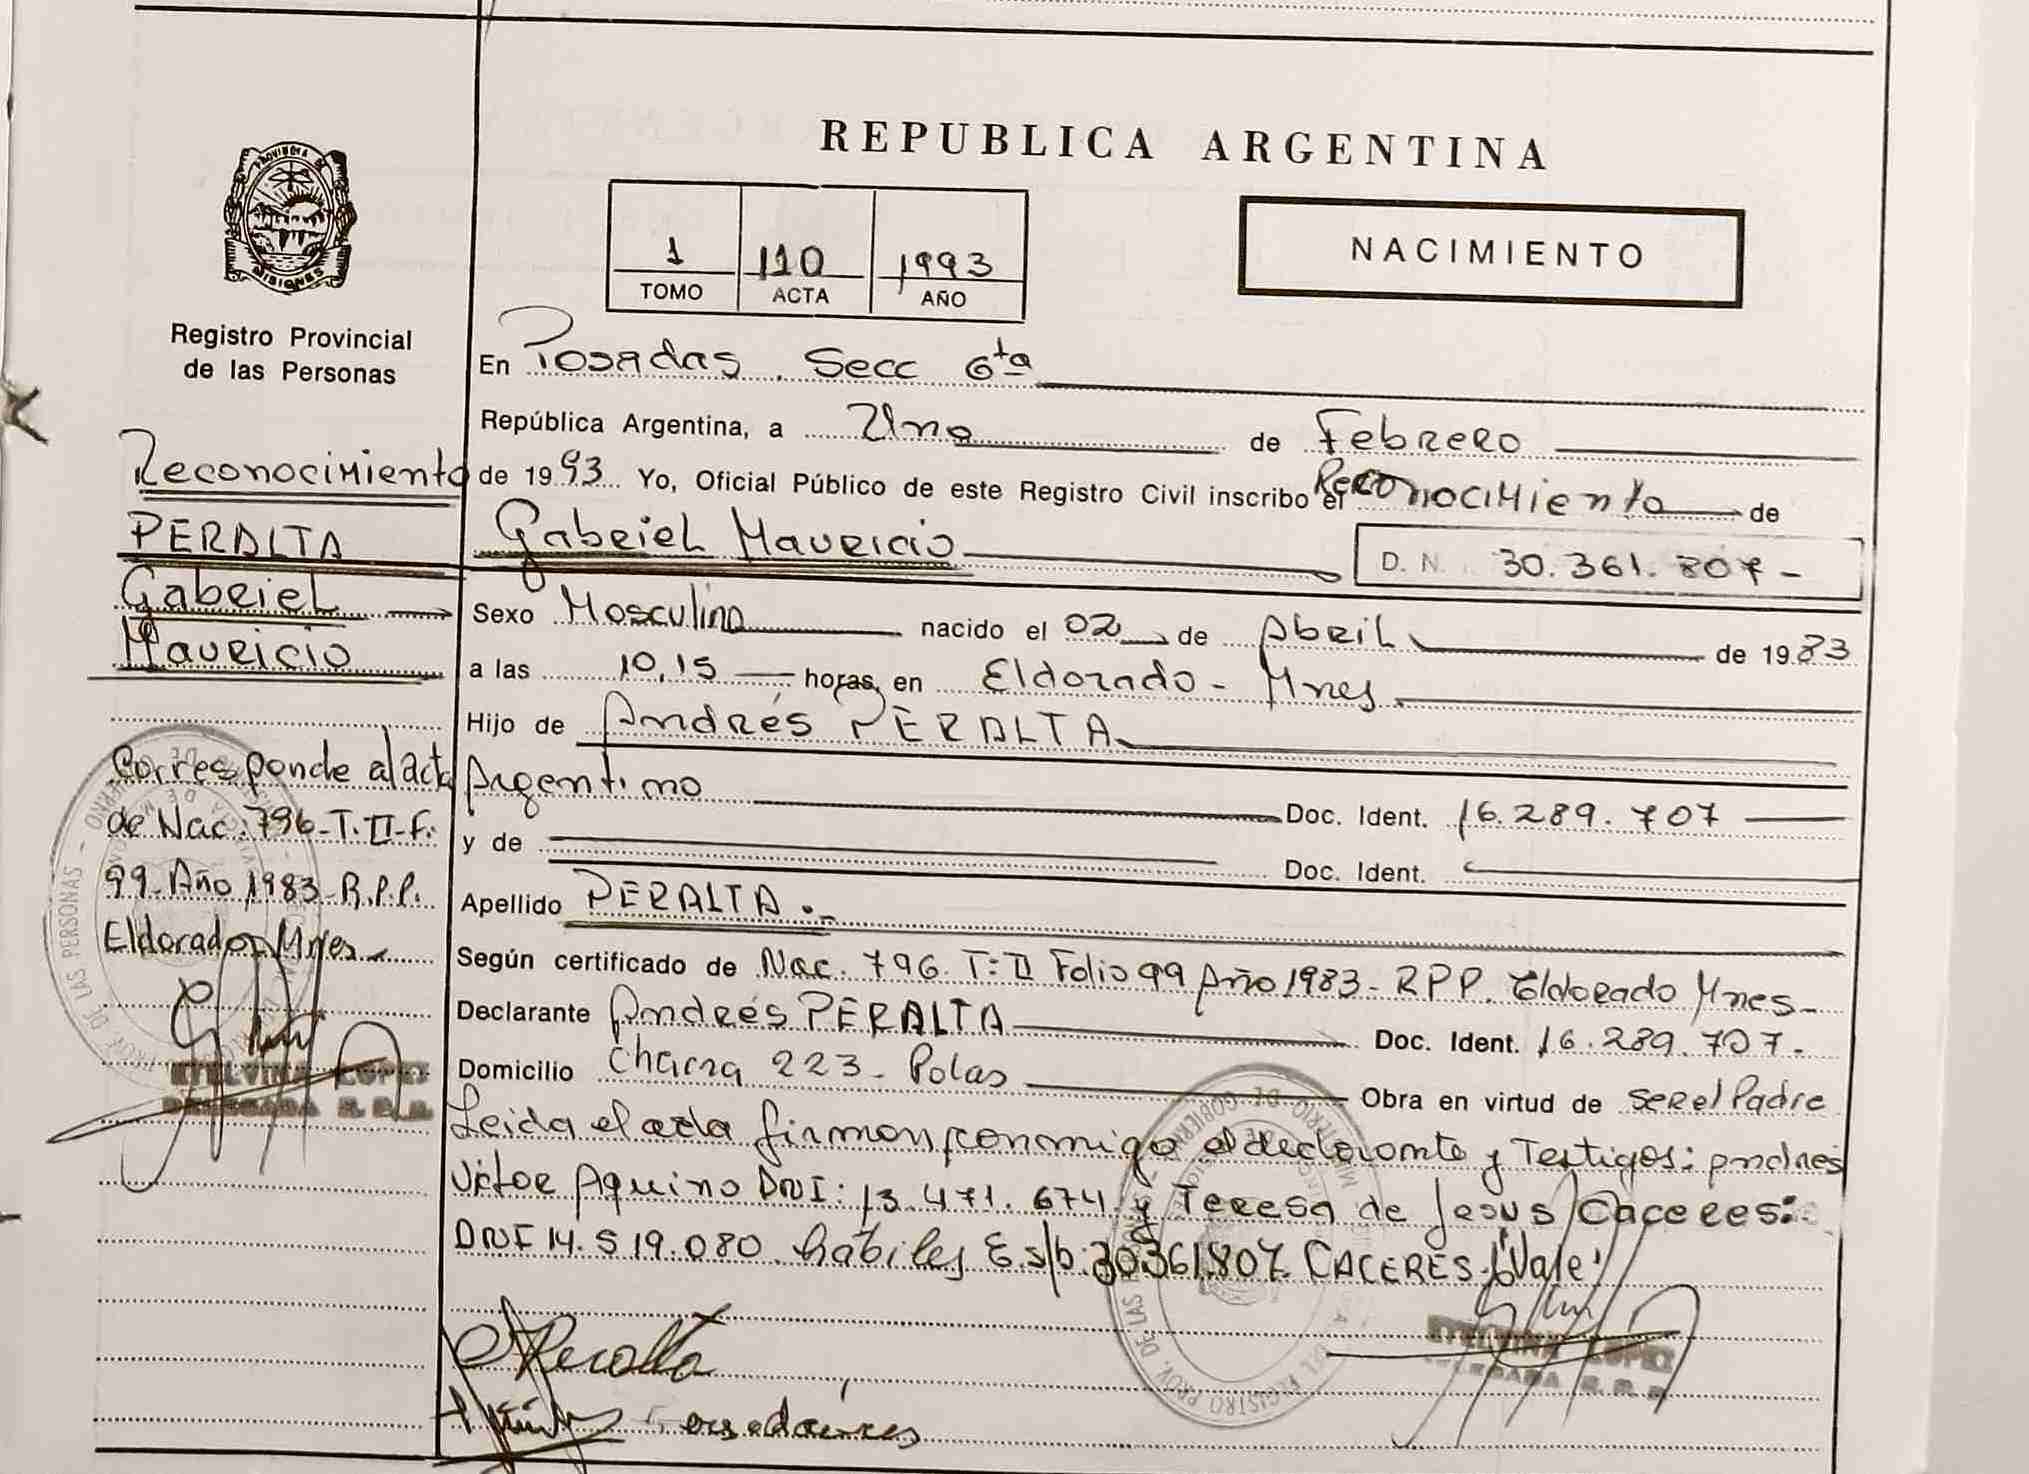 REPUBLICA ARGENTINA
PROVINCIA DE
MISIONES
1 110 1993
TOMO ACTA AÑO
NACIMIENTO
Registro Provincial
de las Personas
Reconocimiento
PERALTA
Gabriel
Mauricio
Corresponde al acta
de Nac. 796-T.II-F.
99-Año 1983-R.P.P.
Eldorado Mnes
ETELVINA LOPEZ
DELEGADA R.P.P.
En Posadas Secc 6ta
República Argentina, a Uno de Febrero
de 1993 Yo, Oficial Público de este Registro Civil inscribo el Reconocimiento de
Gabriel Mauricio D.N. 30.361.807-
Sexo Masculino nacido el 02 de Abril de 1983
a las 10,15 horas, en Eldorado - Mnes
Hijo de Andrés PERALTA
Argentino Doc. Ident. 16.289.707
y de Doc. Ident.
Apellido PERALTA.-
Según certificado de Nac. 796. T:II Folio 99 Año 1983- RPP. Eldorado Mnes-
Declarante Andrés PERALTA Doc. Ident. 16.289.707.
Domicilio 223- Polas Obra en virtud de ser el Padre
Leida el acta firman conmigo el declarante y Testigos: Andres
Victor Aquino DNI: 13.471.674 y Teresa de Jesus Caceres:
DNI 14.519.080. habiles E.s/b:30361.807. CACERES "Vale"
Peralta
ETELVINA LOPEZ
DELEGADA R.P.P.